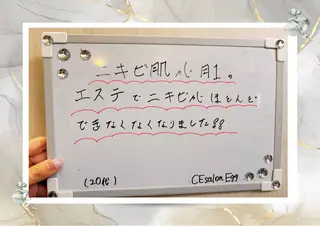 ニキビ肌が月1の
エステでニキビがほとんど
できなくなくなりました!!
(20代) CEsalon Egg